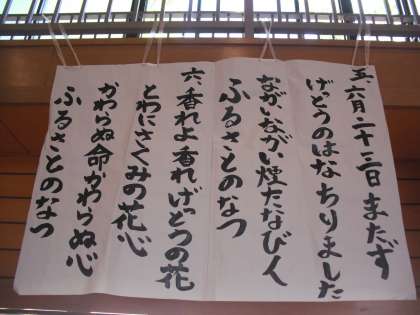 五、六月二十三日 まだず
げっとうのはな ちりました
ながいながい煙たなびく
ふるさとのなつ
六、香れよ香れげっとうの花
とわにさくみの花心
かわらぬ命かわらぬ心
ふるさとのなつ